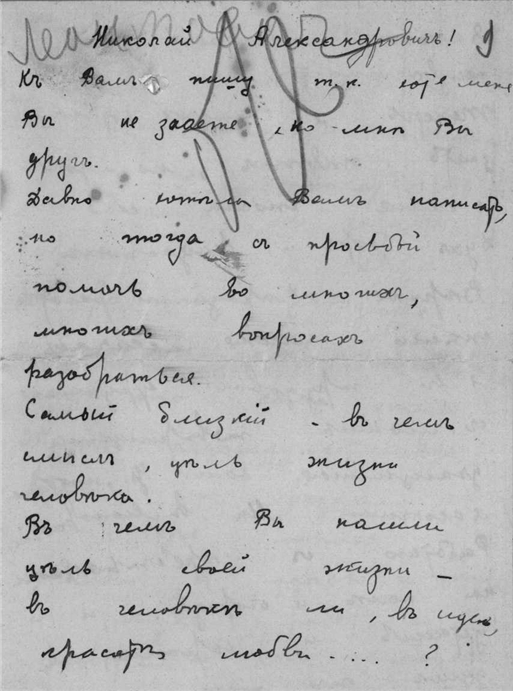 Николай Александровичъ!
Къ Вамъ пишу т.к. хотя меня
Вы не знаете, но мнѣ Вы
другъ.
Давно хотѣла Вамъ написать,
но тогда съ просьбой
помочь во многихъ,
многихъ вопросахъ
разобраться.
Самый близкій - въ чемъ
смыслъ, цѣль жизни
человѣка.
Въ чемъ Вы нашли
цѣль своей жизни –
въ человѣкѣ ли, въ идеѣ,
красотѣ любви .... ?